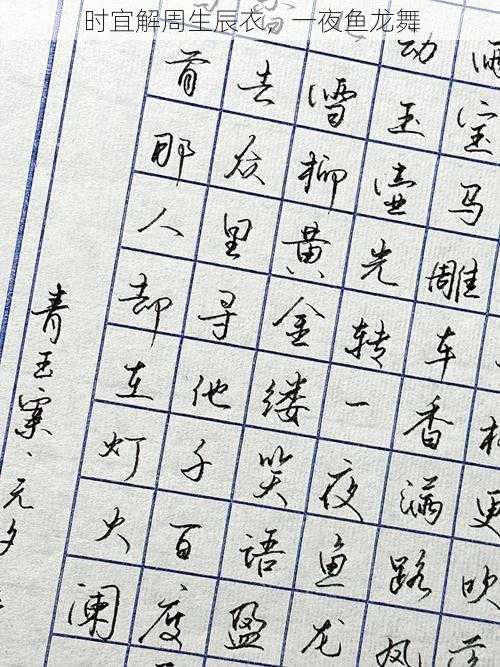 时宜解周生辰衣，一夜鱼龙舞
更吹
雨宝马雕车香满路凤
动玉壶光转一夜鱼龙
雪柳黄金缕笑语盈
去众里寻他千百度
首那人却在灯火阑
青玉案·元夕